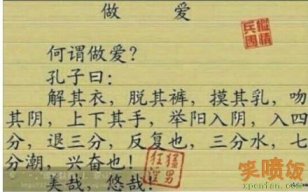 做 爱
何谓做爱？
孔子曰：
解其衣，脱其裤，摸其乳，吻
其阴，上下其手，举阳入阴，入四
分，退三分，反复也，三分水，七
分潮，兴奋也！
美哉！悠哉！
笑喷饭